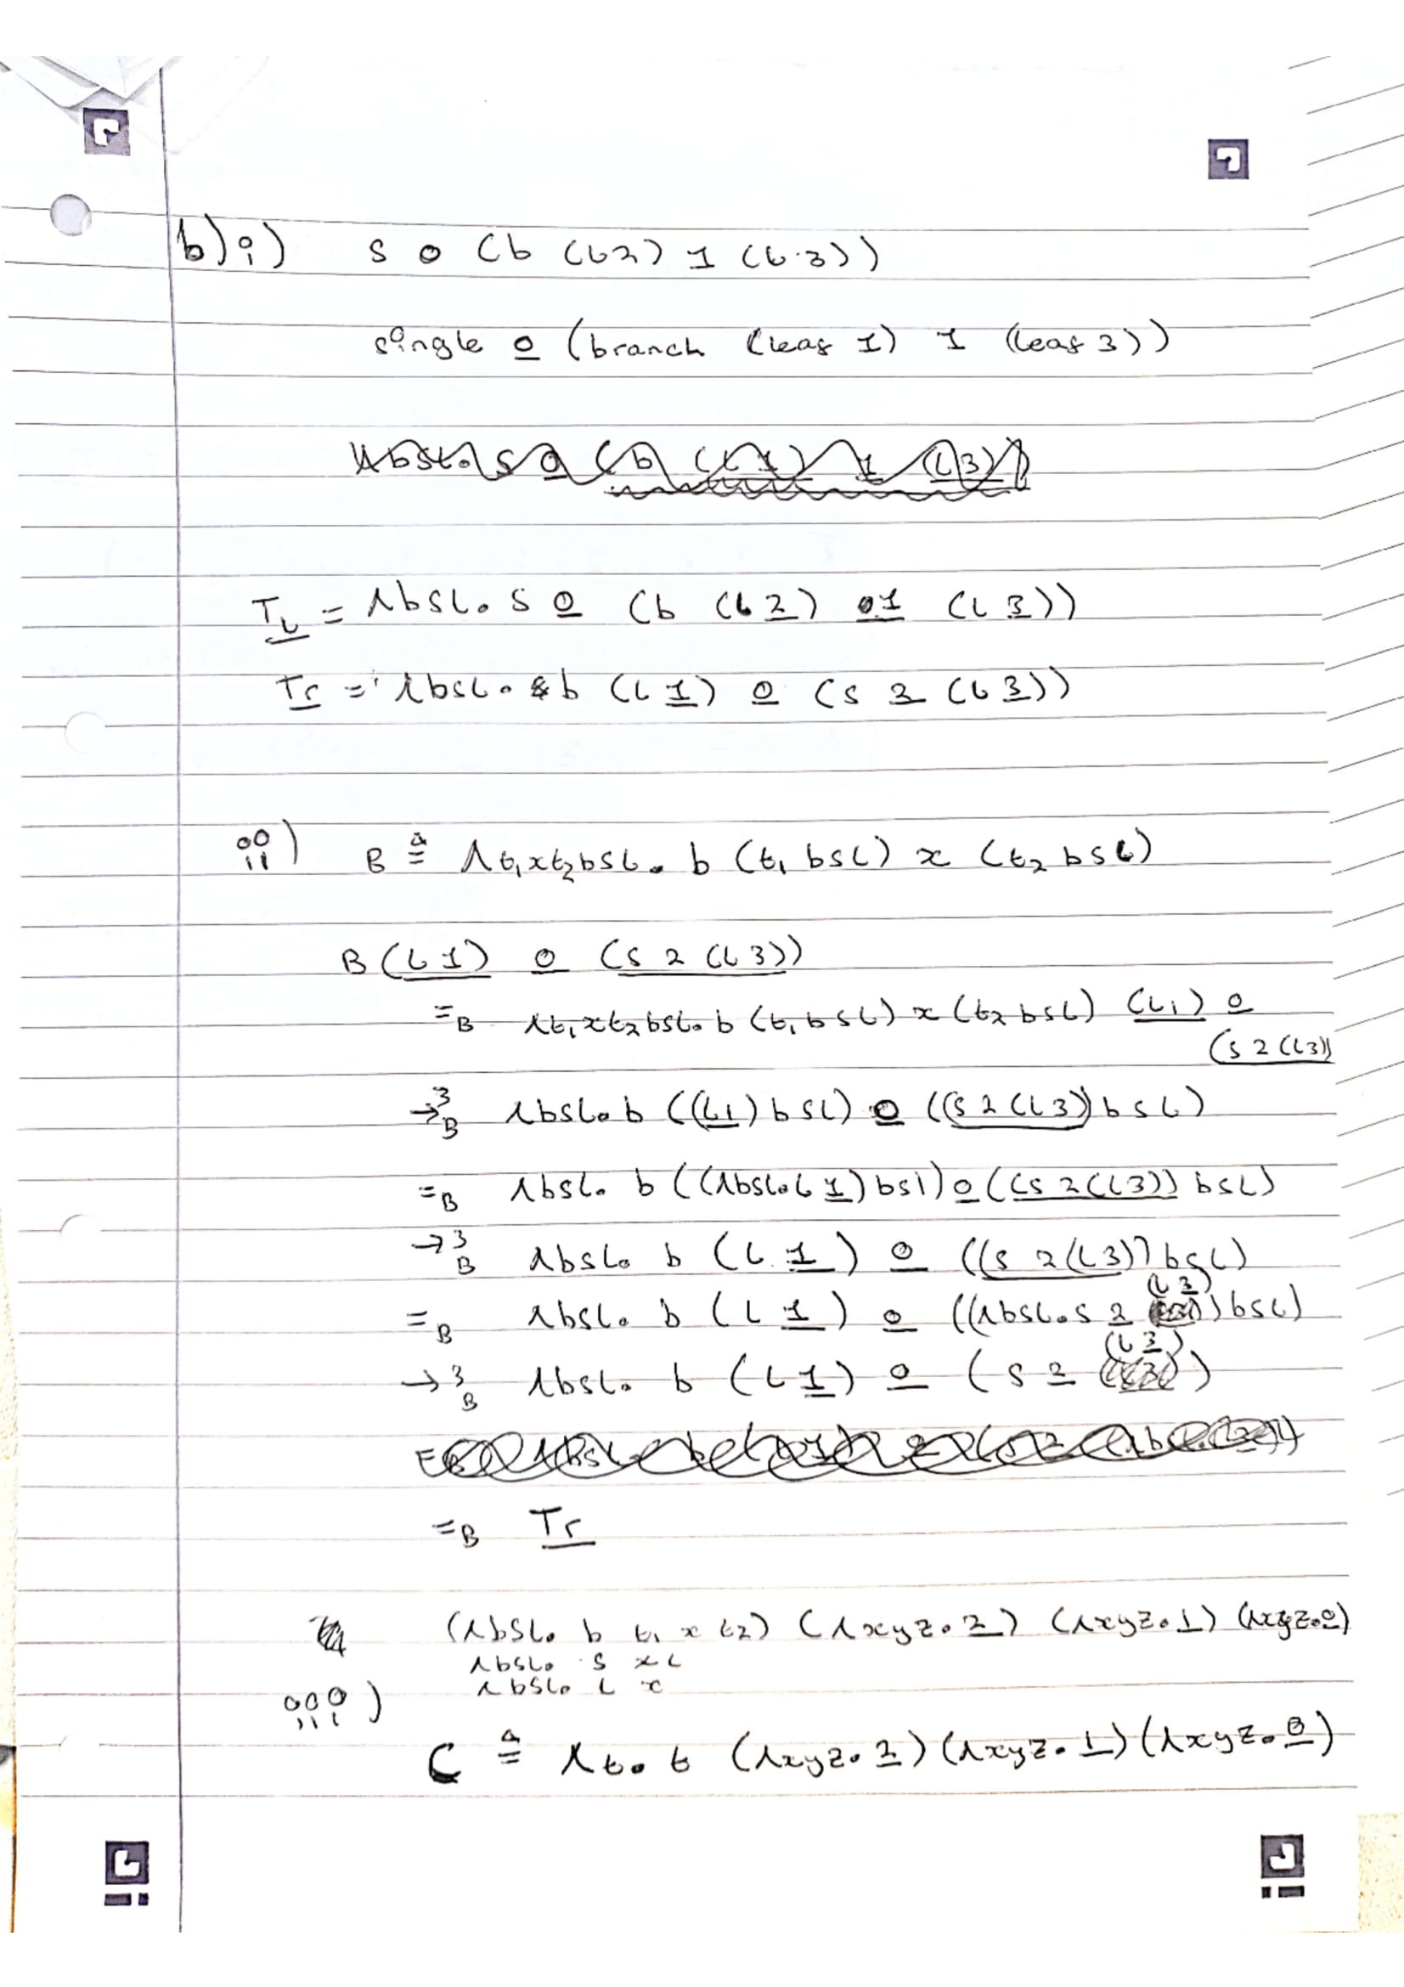 b) i) s 0 (b (l 2) 1 (l 3))
single 0 (branch (leaf 1) 1 (leaf 3))
λbsl. s 0 (b (l 1) 1 (l 3))
T_l = λbsl. s 0 (b (l 2) 1 (l 3))
T_r = λbsl. b (l 1) 0 (s 2 (l 3))
ii) B ≜ λt₁xt₂bsl. b (t₁ bsl) x (t₂ bsl)
B (l 1) 0 (s 2 (l 3))
=B λt₁xt₂bsl. b (t₁ bsl) x (t₂ bsl) (l 1) 0
(s 2 (l 3))
→³B λbsl. b ((l 1) bsl) 0 ((s 2 (l 3)) bsl)
=B λbsl. b ((λbsl. l 1) bsl) 0 ((s 2 (l 3)) bsl)
→³B λbsl. b (l 1) 0 ((s 2 (l 3)) bsl)
=B λbsl. b (l 1) 0 ((λbsl. s 2 (l 3)) bsl)
→³B λbsl. b (l 1) 0 (s 2 (l 3))
=B T_r
(λbsl. b t₁ x t₂) (λxyz. 2) (λxyz. 1) (λxyz. 0)
λbsl. s x l
λbsl. l x
iii)
C ≜ λt. t (λxyz. 2) (λxyz. 1) (λxyz. 0)